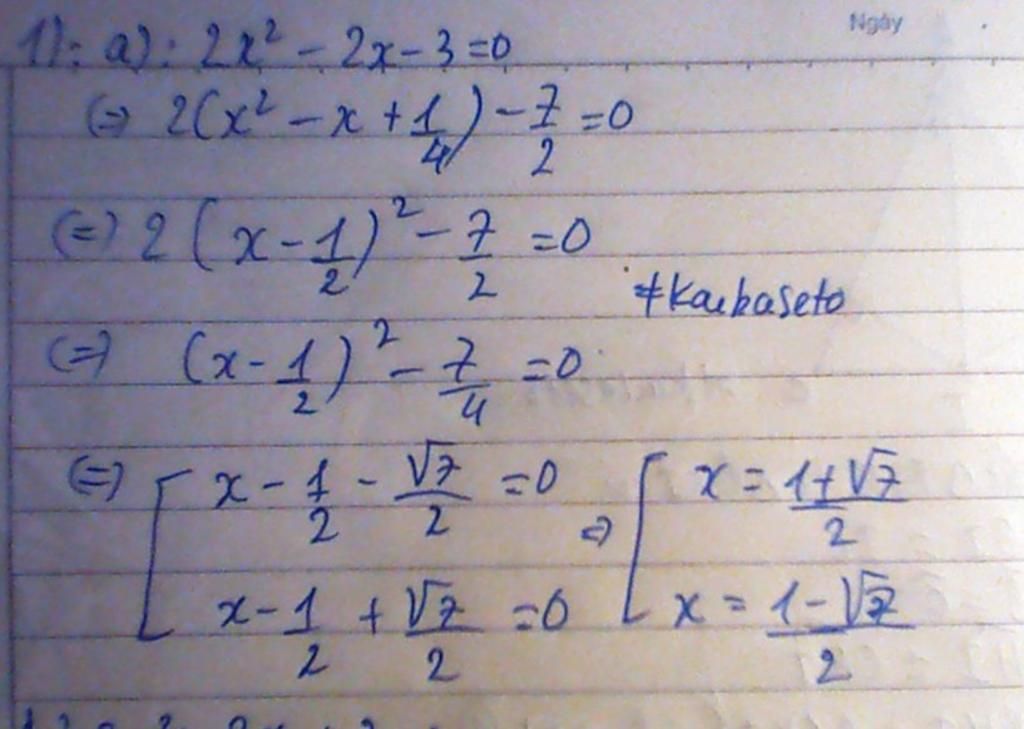 Ngày
1): a): 2x² - 2x - 3 = 0
(=) 2(x² - x + 1/4) - 7/2 = 0
(=) 2(x - 1/2)² - 7/2 = 0
#Kaubaseto
(=) (x - 1/2)² - 7/4 = 0
(=) [ x - 1/2 - √7/2 = 0 => [ x = (1+√7)/2
x - 1/2 + √7/2 = 0 x = (1-√7)/2